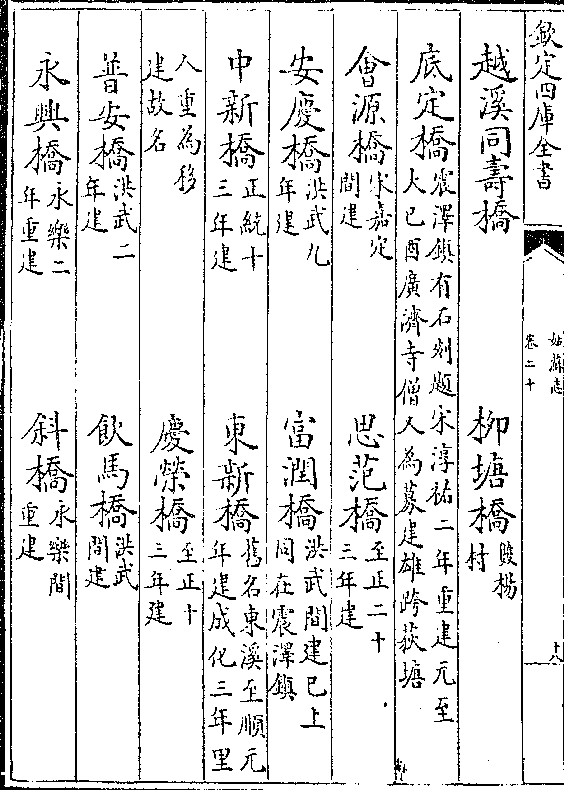 欽定四庫全書
姑蘇志
卷二十
十八
越溪同壽橋
柳塘橋
楊
村
底定橋
震澤鎮有石刻題宋淳祐二年重建元至
大己酉廣濟寺僧人為募建雄跨荻塘
會源橋
宋嘉定
間建
思范橋
至正二十
三年建
安慶橋
洪武九
年建
富潤橋
洪武間建已上
同在震澤鎮
中新橋
正統十
三年建
東新橋
舊名東溪至順元
年建成化三年里
人重為移
建故名
慶榮橋
至正十
三年建
普安橋
洪武二
年建
飲馬橋
洪武
間建
永興橋
永樂二
年重建
斜橋
永樂間
重建